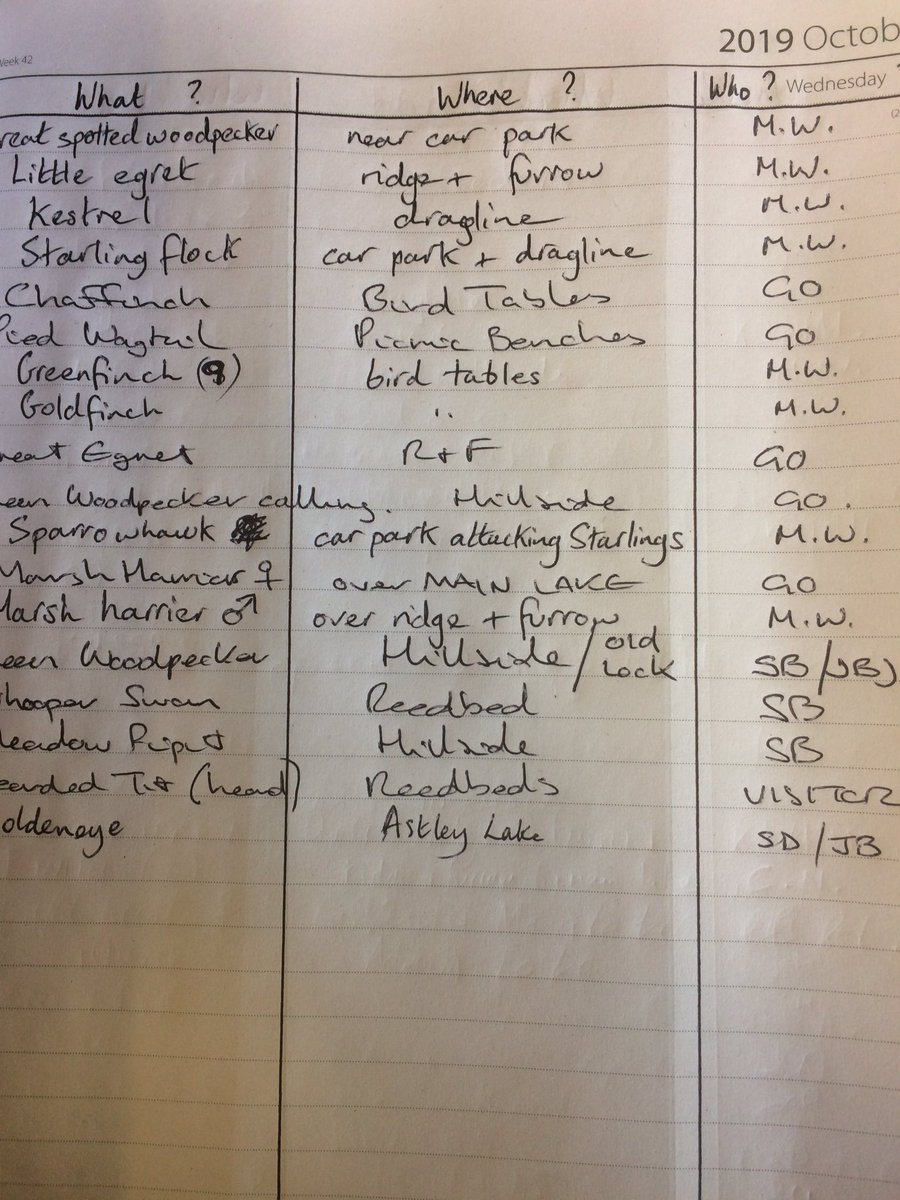 Week 42 2019 Octob
What ? Where ? Who ? Wednesday
reat spotted woodpecker near car park M.W.
Little egret ridge + furrow M.W.
Kestrel dragline M.W.
Starling flock car park + dragline M.W.
Chaffinch Bird Tables GO
Pied Wagtail Picnic Benches GO
Greenfinch (9) bird tables M.W.
Goldfinch " M.W.
reat Egret R+F GO
een Woodpecker calling. Hillside GO.
Sparrowhawk car park attacking Starlings M.W.
Marsh Harrier ♀ over MAIN LAKE GO
Marsh harrier ♂ over ridge + furrow M.W.
een Woodpecker Hillside / old Lock SB / JB)
hooper Swan Reedbed SB
eadow Pipit Hillside SB
earded Tit (heard) Reedbeds VISITOR
oldeneye Astley Lake SD / JB